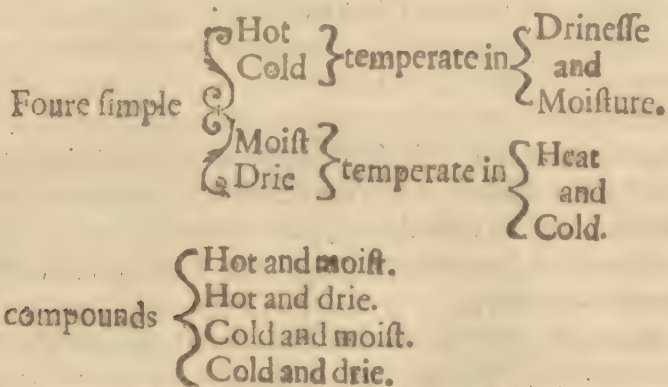 Foure ſimple
Hot
Cold
temperate in
Drineſſe
and
Moiſture.
Moiſt
Drie
temperate in
Heat
and
Cold.
compounds
Hot and moiſt.
Hot and drie.
Cold and moiſt.
Cold and drie.